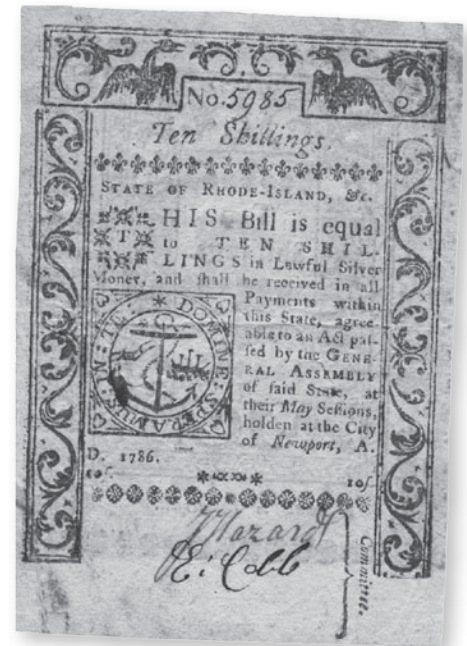 No. 5985
Ten Shillings.
STATE OF RHODE-ISLAND, &c.
THIS Bill is equal
to TEN SHIL-
LINGS in Lawful Silver
Money, and shall be received in all
Payments within
this State, agree-
able to an Act paſ-
ſed by the GENE-
RAL ASSEMBLY
of ſaid State, at
their May Seſſions,
holden at the City
of Newport, A.
D. 1786.
IN TE DOMINE SPERAMUS
10ſ. 10ſ.
J Hazard
E: Cobb
Committee.